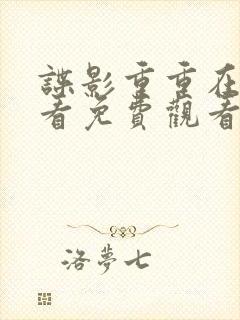 諜影重重在
看免費觀看
洛夢七